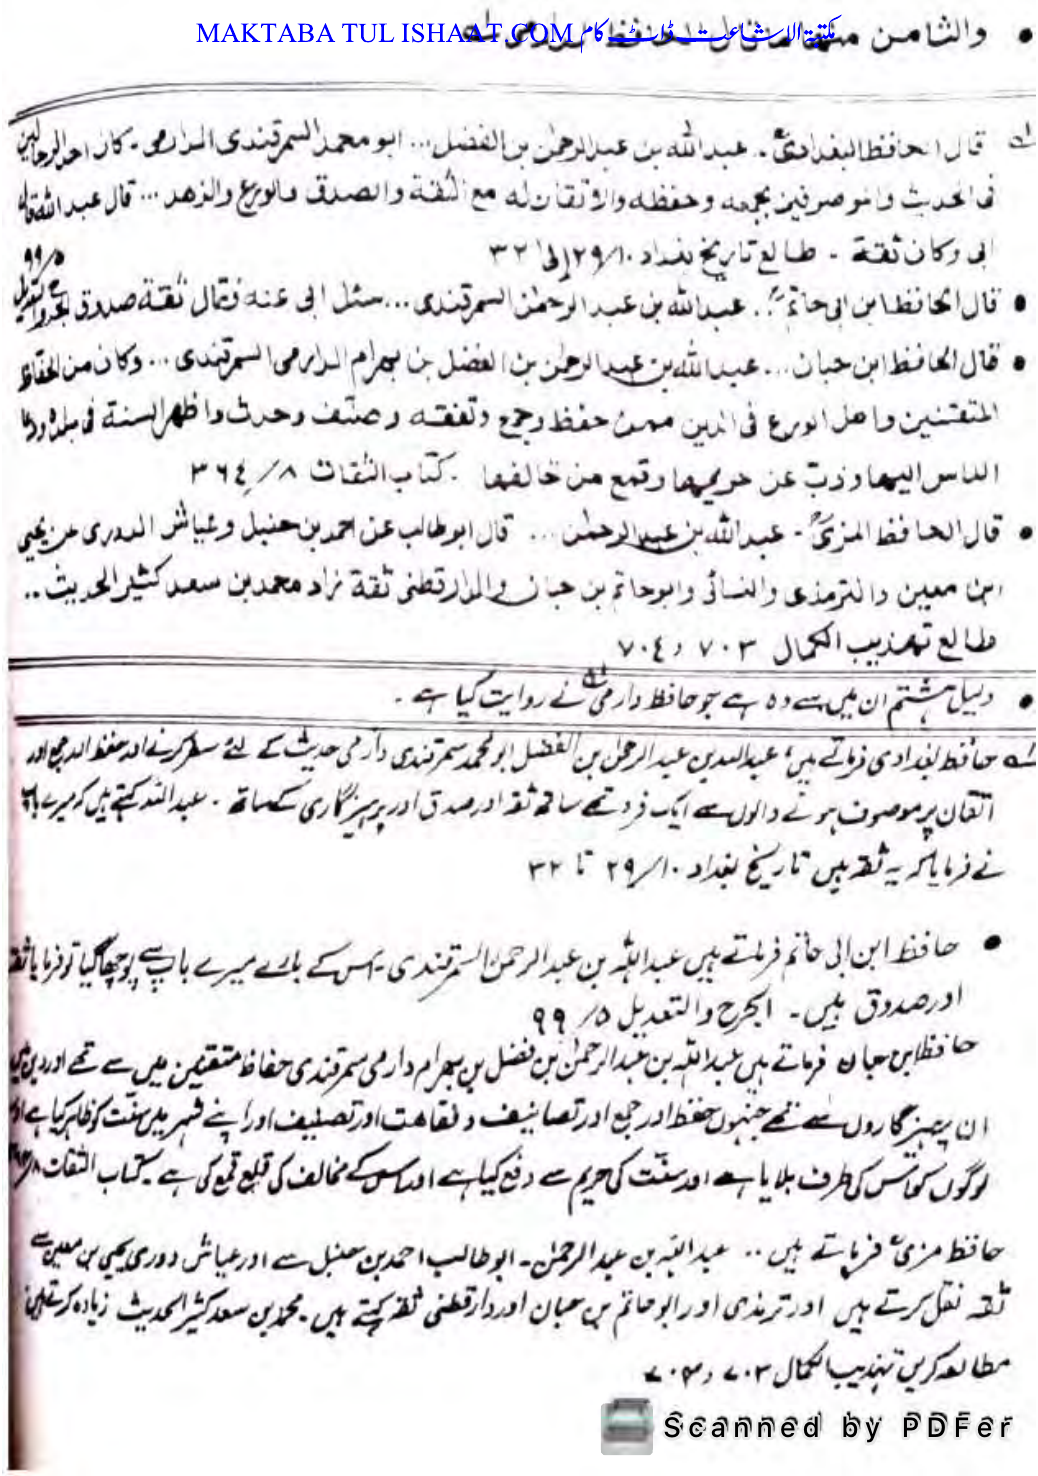 MAKTABA TUL ISHAAT.COM مکتبۃ الاشاعت ڈاٹ کام
• والثامن منها ما قال الحافظ الدارمی
قال الحافظ البغدادی۔ عبد الله بن عبدالرحمن بن الفضل... ابو محمد السمرقندی الدارمی۔ کان احد الرحالین
فی الحدیث والموصوفین بجمعه وحفظه والاتقان له مع الثقة والصدق والورع والزهد ... قال عبد الله قال
ابی وکان ثقة ۔ طالع تاریخ بغداد ۲۹/۱۰ إلی ۳۲
۹۹/۵
• قال الحافظ ابن ابی حاتم۔ عبدالله بن عبد الرحمن السمرقندی ... سئل ابی عنه فقال ثقة صدوق الجرح والتعدیل
• قال الحافظ ابن حبان ... عبدالله بن عبدالرحمن بن الفضل بن بهرام الدارمی السمرقندی ... وکان من الحفاظ
المتقنین واهل الورع فی الدین ممن حفظ وجمع وتفقه وصنف وحدث واظهر السنة فی بلده ودعا
الناس الیها وذب عن حریمها وقمع من خالفها ۔ کتاب الثقات ۸/ ۳٦٤
• قال الحافظ المزی۔ عبدالله بن عبدالرحمن ... قال ابو طالب عن احمد بن حنبل وعیاش الدوری عن یحیی
ابن معین والترمذی والنسائی وابو حاتم بن حبان والدارقطنی ثقة زاد محمد بن سعد کثیر الحدیث ..
طالع تهذیب الکمال ۷۰۳ ، ۷۰٤
• دلیل ہشتم ان میں سے وہ ہے جو حافظ دارمی نے روایت کیا ہے ۔
حافظ بغدادی فرماتے ہیں عبداللہ بن عبدالرحمن بن الفضل ابو محمد سمرقندی دارمی حدیث کے لئے سفر کرنے اور حفظ اور جمع اور
اتقان پر موصوف ہونے والوں سے ایک فرد تھے ساتھ ثقہ اور صدق اور پرہیزگاری کے ساتھ ۔ عبداللہ کہتے ہیں کہ میرے باپ
نے فرمایا کہ یہ ثقہ ہیں تاریخ بغداد ۲۹/۱۰ تا ۳۲
• حافظ ابن ابی حاتم فرماتے ہیں عبداللہ بن عبدالرحمن السمرقندی ۔ اس کے بارے میرے باپ سے پوچھا گیا تو فرمایا ثقہ
اور صدوق ہیں۔ الجرح والتعدیل ۵/ ۹۹
حافظ ابن حبان فرماتے ہیں عبداللہ بن عبدالرحمن بن فضل بن بہرام دارمی سمرقندی حفاظ متقنین میں سے تھے اور دین میں
ان پرہیزگاروں سے تھے جنہوں حفظ اور جمع اور تصانیف و نقاہت اور تصنیف اور اپنے شہر میں سنت کو ظاہر کیا ہے اور
لوگوں کو اس کی طرف بلایا ہے اور سنت کی حریم سے دفع کیا ہے اور اس کے مخالف کی قلع قمع کی ہے کتاب الثقات
حافظ مزی فرماتے ہیں .. عبداللہ بن عبدالرحمن۔ ابو طالب احمد بن حنبل سے اور عیاش دوری یحیی بن معین سے
ثقہ نقل کرتے ہیں اور ترمذی اور ابو حاتم بن حبان اور دارقطنی ثقہ کہتے ہیں۔ محمد بن سعد کثیر الحدیث زیادہ کرتے ہیں
مطالعہ کریں تہذیب الکمال ۷۰۳ ، ۷۰۴
Scanned by PDFer